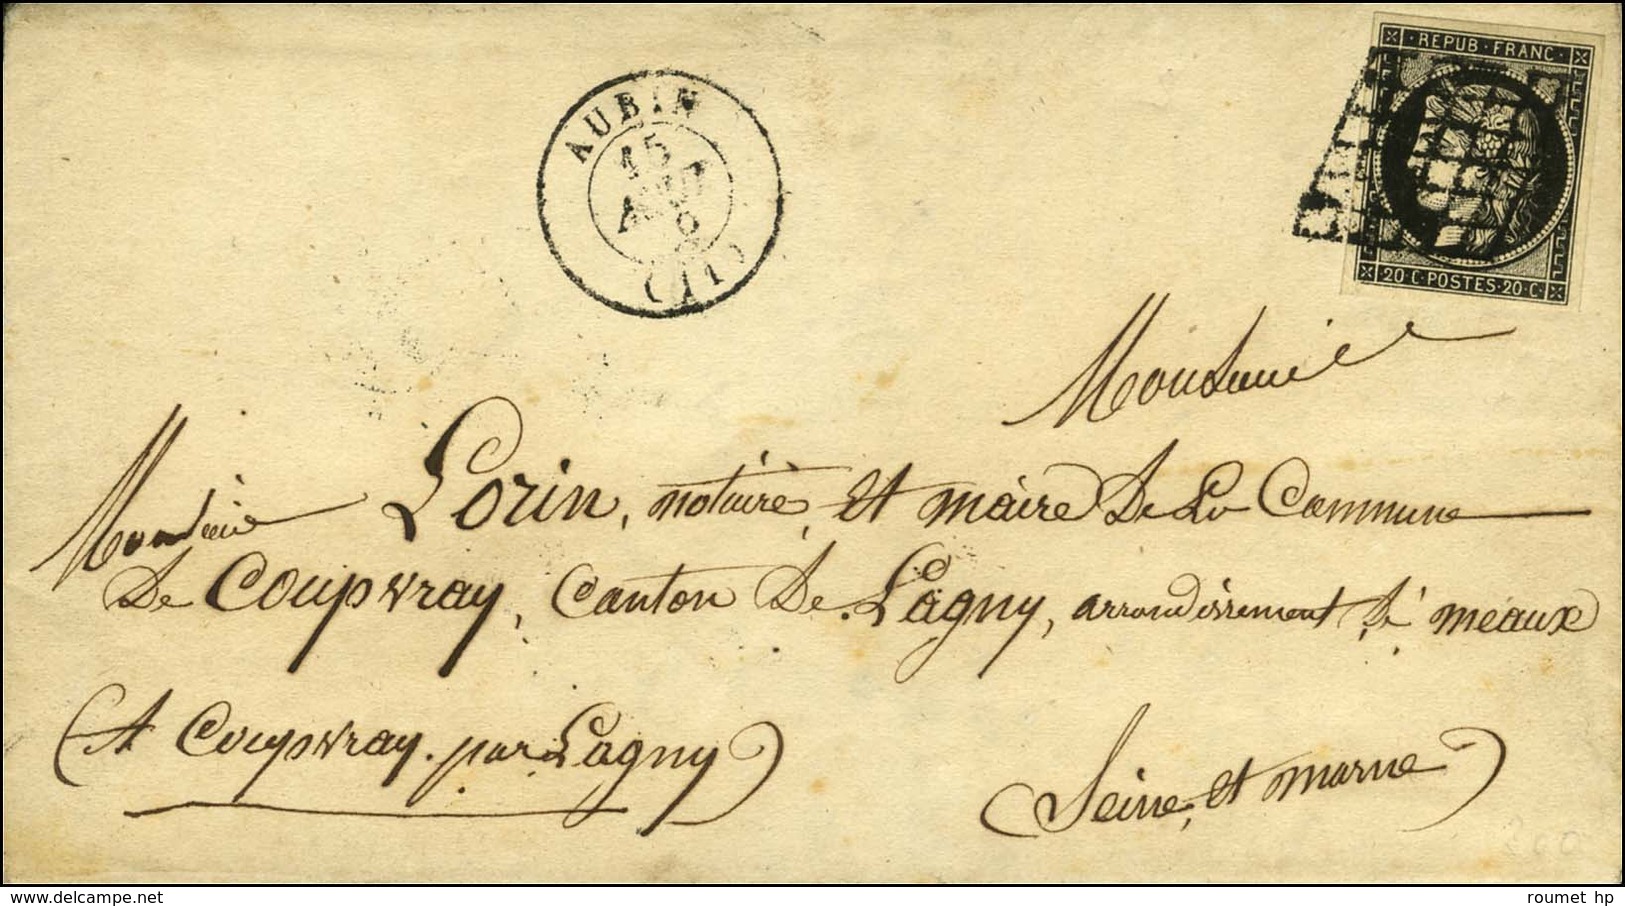 REPUB · FRANC ·
AUBIN
15
AOUT
(11)
20 C · POSTES · 20 C ·
Monsieur
Monsieur Lorin, notaire, et maire de La Commune
de Coupvray, Canton de Lagny, arrondissement de meaux
(A Coupvray. par Lagny)
(Seine, et marne)
delcampe.net
roumet hp